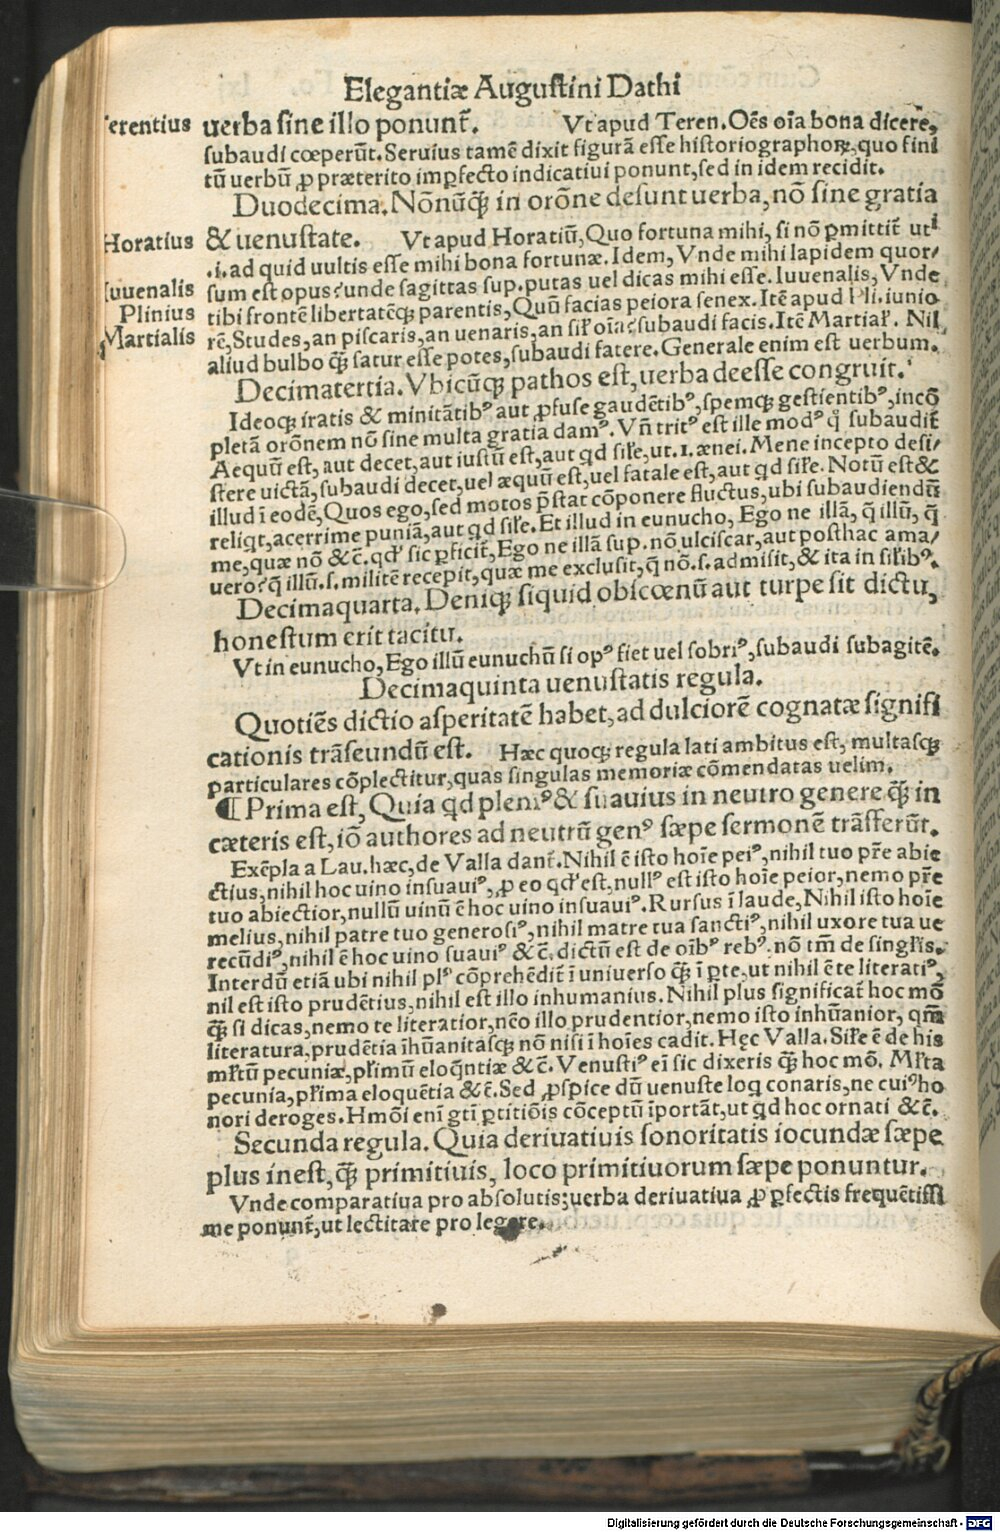 Elegantiæ Augustini Dathi
erentius uerba sine illo ponunt᷒. Vt apud Teren. Oẽs oĩa bona dicere,
subaudi cœperũt. Seruius tamẽ dixit figurã esse historiographoꝝ, quo fini
tũ uerbũ ꝓ præterito imꝑfecto indicatiui ponunt, sed in idem recidit.
Duodecima. Nõnũꝗ̃ in orõne desunt uerba, nõ sine gratia
Horatius & uenustate. Vt apud Horatiũ, Quo fortuna mihi, si nõ ꝑmittit᷒ uti
.i. ad quid uultis esse mihi bona fortunæ. Idem, Vnde mihi lapidem quor/
Iuuenalis sum est opus? unde sagittas sup. putas uel dicas mihi esse. Iuuenalis, Vnde
Plinius tibi frontẽ libertatẽqꝫ parentis, Quũ facias peiora senex. Itẽ apud Pli. iunio
Martialis rẽ, Studes, an piscaris, an uenaris, an sił oĩa? subaudi facis. Itẽ Martiał. Nil
aliud bulbo ꝗ̃ satur esse potes, subaudi fatere. Generale enim est uerbum.
Decimatertia. Vbicũqꝫ pathos est, uerba deesse congruit.
Ideoqꝫ iratis & minitãtibꝰ aut ꝓfuse gaudẽtibꝰ, spemqꝫ gestientibꝰ, incõ
pletã orõnem nõ sine multa gratia damꝰ. Vñ tritꝰ est ille modꝰ q̊ subaudit᷒
Aequũ est, aut decet, aut iustũ est, aut qd siłe, ut .1. ænei. Mene incepto desi/
stere uictã, subaudi decet, uel æquũ est, uel fatale est, aut qd siłe. Notũ est &
illud ĩ eodẽ, Quos ego, sed motos p̃stat cõponere fluctus, ubi subaudiendũ
reliqt, acerrime puniã, aut qd siłe. Et illud in eunucho, Ego ne illã, q̃ illũ, q̃
me, quæ nõ &c̃. qď sic ꝑficit᷒, Ego ne illã sup. nõ ulciscar, aut posthac ama/
uero? q̃ illũ .s. militẽ recepit, quæ me exclusit, q̃ nõ .s. admisit, & ita in siłibꝰ.
Decimaquarta. Deniqꝫ siquid obscœnũ aut turpe sit dictu,
honestum erit tacitu.
Vt in eunucho, Ego illũ eunuchũ si opꝰ fiet uel sobriꝰ, subaudi subagitẽ.
Decimaquinta uenustatis regula.
Quotiẽs dictio asperitatẽ habet, ad dulciorẽ cognatæ signifi
cationis trãseundũ est. Hæc quoqꝫ regula lati ambitus est, multasqꝫ
particulares cõplectitur, quas singulas memoriæ cõmendatas uelim.
¶ Prima est, Quia qd pleniꝰ & suauius in neutro genere ꝗ̃ in
cæteris est, iõ authores ad neutrũ genꝰ sæpe sermonẽ trãsferũt.
Exẽpla a Lau. hæc, de Valla dant᷒. Nihil ẽ isto hoĩe peiꝰ, nihil tuo pr̃e abie
ctius, nihil hoc uino insuauiꝰ, ꝓ eo qď est, nullꝰ est isto hoĩe peior, nemo pr̃e
tuo abiectior, nullũ uinũ ẽ hoc uino insuauiꝰ. Rursus ĩ laude, Nihil isto hoĩe
melius, nihil patre tuo generosiꝰ, nihil matre tua sanctiꝰ, nihil uxore tua ue
recũdiꝰ, nihil ẽ hoc uino suauiꝰ &c̃. dictũ est de oĩbꝰ rebꝰ. nõ tm̃ de singłis.
Interdũ etiã ubi nihil plꝰ cõprehẽdit᷒ ĩ uniuerso ꝗ̃ ĩ ꝑte, ut nihil ẽ te literatiꝰ,
nil est isto prudẽtius, nihil est illo inhumanius. Nihil plus significat᷒ hoc mõ
ꝗ̃ si dicas, nemo te literatior, nẽo illo prudentior, nemo isto inhũanior, qm̃
literatura, prudẽtia ĩhũanitasqꝫ nõ nisi ĩ hoĩes cadit. Hęc Valla. Siłe ẽ de his
młtũ pecuniæ, płimũ eloq̃ntiæ &c̃. Venustiꝰ ei̅ sic dixeris ꝗ̃ hoc mõ. Młta
pecunia, płima eloquẽtia &c̃. Sed ꝓspice dũ uenuste loq conaris, ne cuiꝰ ho
nori deroges. Hmõi enĩ gtĩ ꝑtitiõis cõceptũ ĩportãt, ut qd hoc ornati &c̃.
Secunda regula. Quia deriuatiuis sonoritatis iocundæ sæpe
plus inest, ꝗ̃ primitiuis, loco primitiuorum sæpe ponuntur.
Vnde comparatiua pro absolutis; uerba deriuatiua ꝓ ꝑfectis frequẽtissi
me ponunt᷒, ut lectitare pro legere.
Digitalisierung gefördert durch die Deutsche Forschungsgemeinschaft - DFG